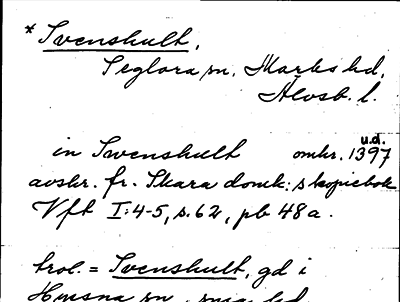 * Svenshult,
Seglora sn, Marks hd,
Älvsb. l.
u.d.
in Swenshult omkr. 1397
avskr. fr. Skara domk:s kopiebok
Vft I:4-5, s. 62, pb 48a.
trol. = Svenshult, gd i
Hyssna sn, sma hd